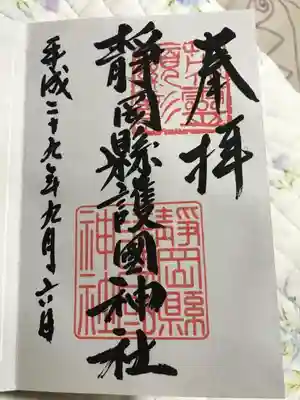 奉拝
英靈顯彰
靜岡縣護國神社
靜岡縣護國神社
平成二十九年九月六日